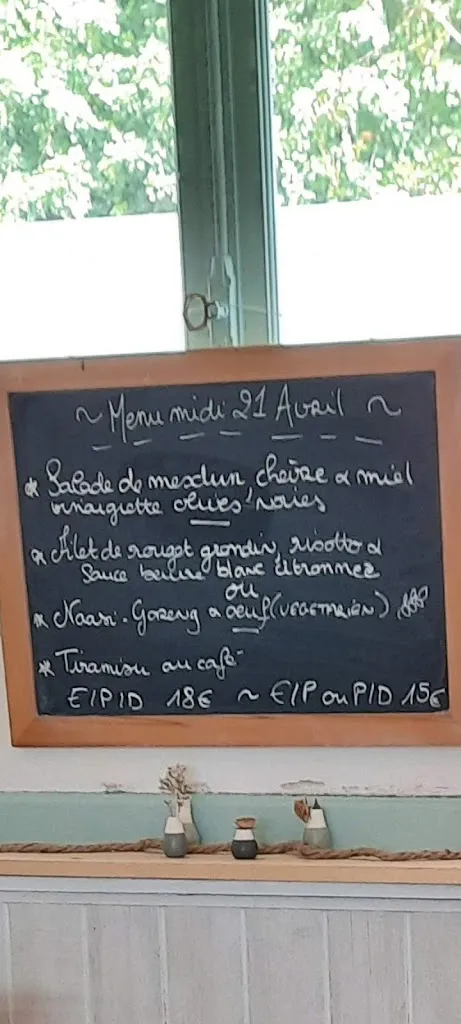 ~ Menu midi 21 Avril ~
* Salade de mesclun chèvre & miel
vinaigrette olives noires
* Filet de rouget grondin, risotto &
Sauce beurre blanc citronnée
ou
* Naasi-Goreng & oeuf (VEGETARIEN)
* Tiramisu au café
E/P/D 18€ ~ E/P ou P/D 15€